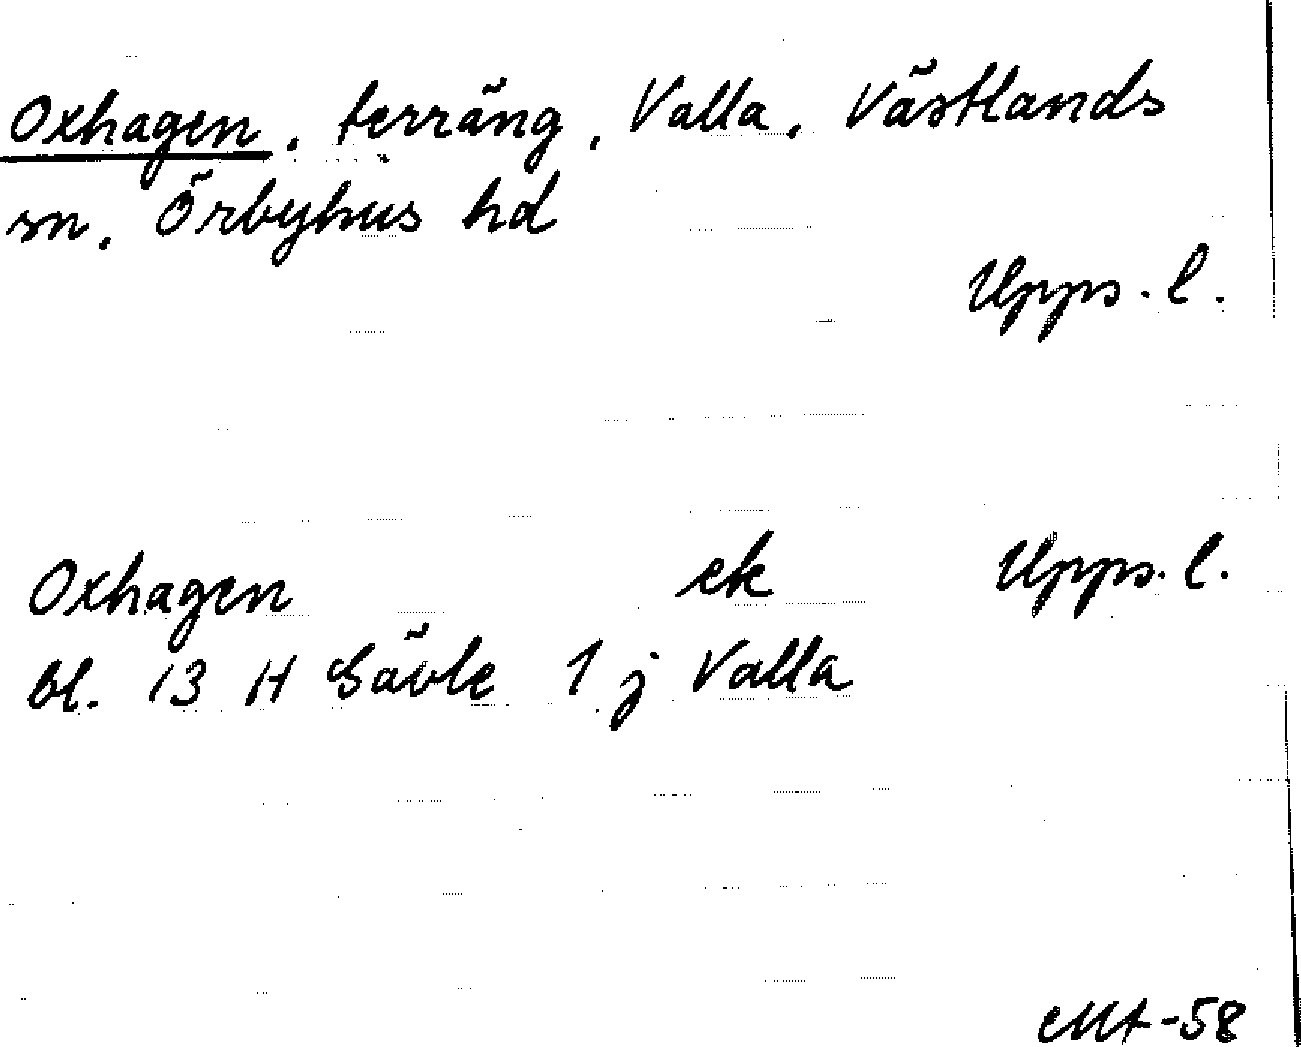 Oxhagen, terräng, Valla, Västlands
sn, Örbyhus hd
Upps. l.
Oxhagen ek Upps. l.
bl. 13 H Gävle 1 j Valla
MA-58